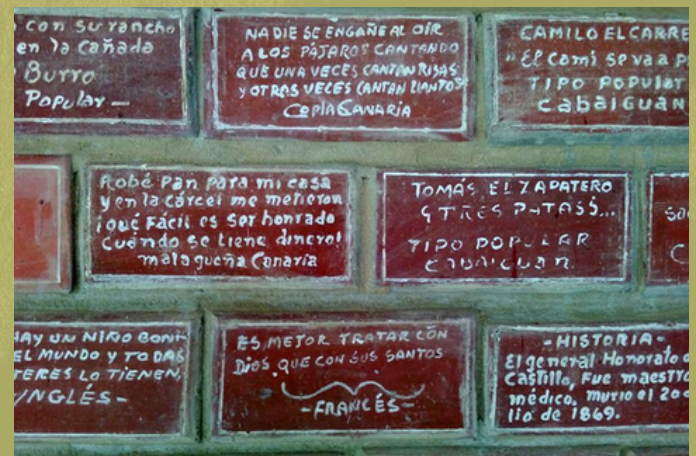 con su rancho
en la cañada
Burro
Popular —
NADIE SE ENGAÑE AL OIR
A LOS PÁJAROS CANTANDO
QUE UNA VECES CANTAN RISAS
Y OTRAS VECES CANTAN LLANTOS
COPLA CANARIA
CAMILO EL CARRE
"El Cami se va a P
TIPO POPULAR
CABAIGUAN
Robé pan para mi casa
y en la cárcel me metieron
¡qué Fácil es ser honrado
cuándo se tiene dinero!
malagueña Canaria
TOMÁS EL ZAPATERO
TRES PATASS...
TIPO POPULAR
CABAIGUAN
so
C
HAY UN NIÑO BONI-
EL MUNDO Y TODAS
TERES LO TIENEN,
INGLÉS -
ES MEJOR TRATAR CÓN
DIOS QUE CON SUS SANTOS
-FRANCÉS-
-HISTORIA-
El general Honorato d
Castillo, Fue maestro
médico, murio el 20 d
lio de 1869.